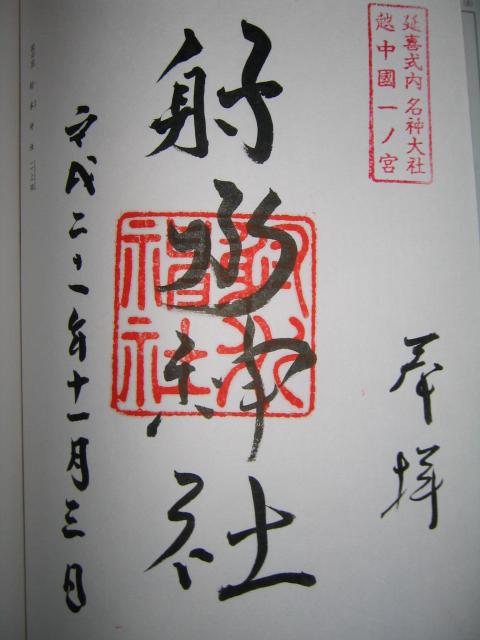 延喜式内 名神大社
越中國一ノ宮
奉拝
射水神社
射水
神社
平成二十一年十一月三日